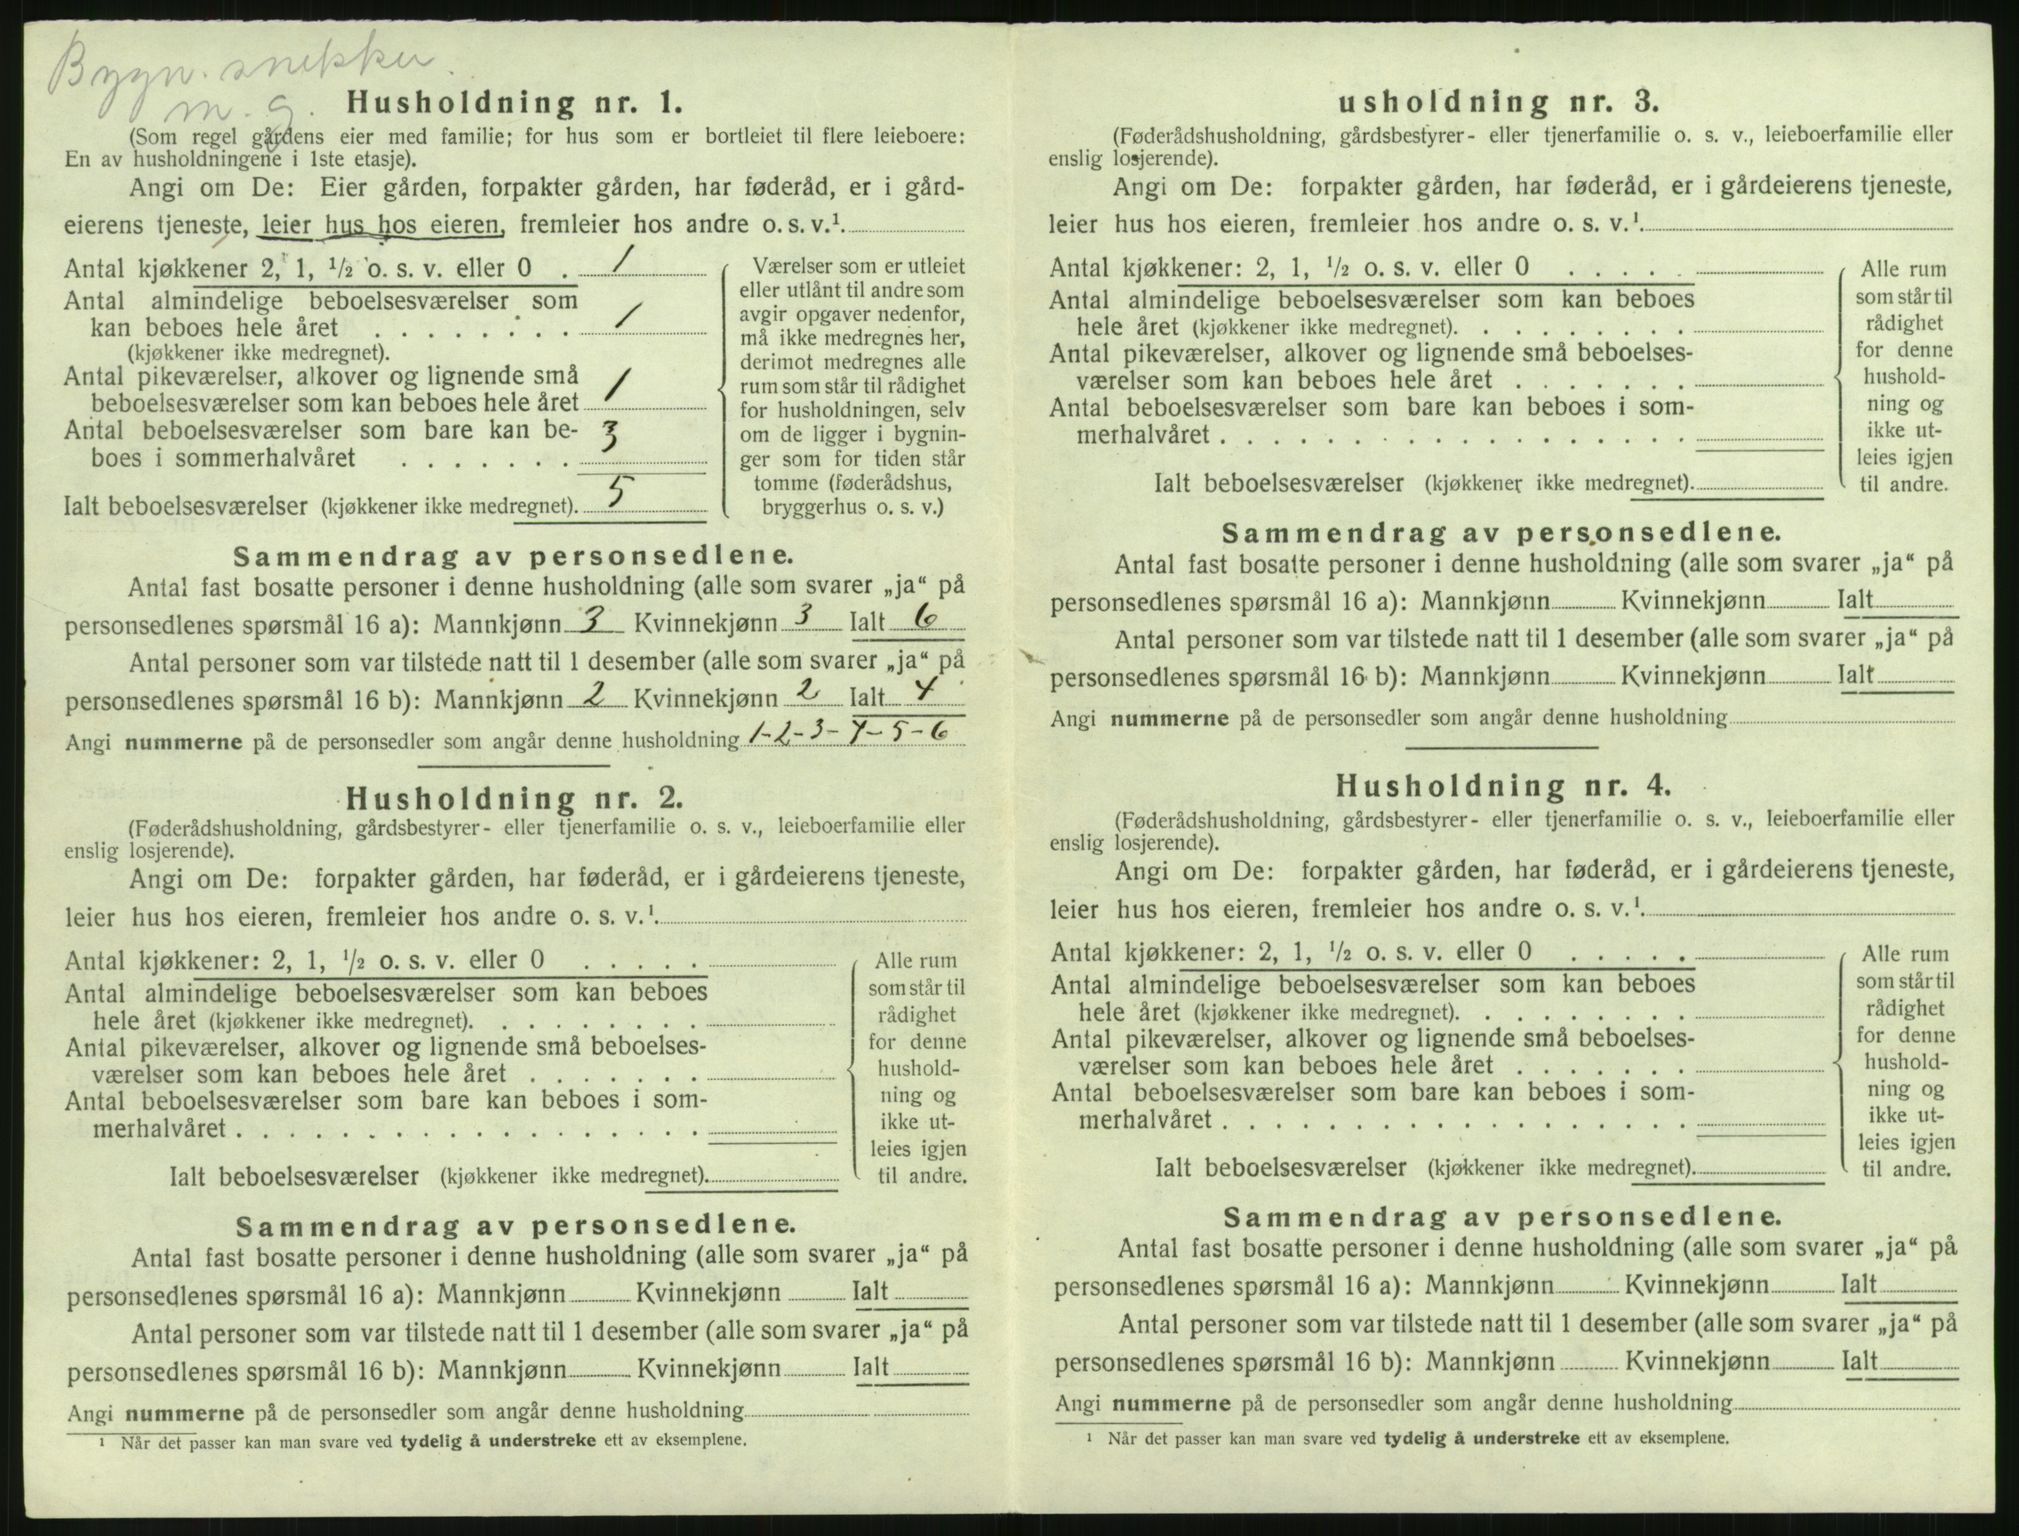 Bygn. snekker
m. g.
Husholdning nr. 1.
(Som regel gårdens eier med familie; for hus som er bortleiet til flere leieboere:
En av husholdningene i 1ste etasje).
Angi om De: Eier gården, forpakter gården, har føderåd, er i gård-
eierens tjeneste, leier hus hos eieren, fremleier hos andre o. s. v.¹
Antal kjøkkener 2, 1, ½ o. s. v. eller 0 . 1
Antal almindelige beboelsesværelser som
kan beboes hele året . . . . . . . . 1
(kjøkkener ikke medregnet).
Antal pikeværelser, alkover og lignende små
beboelsesværelser som kan beboes hele året 1
Antal beboelsesværelser som bare kan be-
boes i sommerhalvåret . . . . . . . 3
Ialt beboelsesværelser (kjøkkener ikke medregnet). 5
Værelser som er utleiet
eller utlånt til andre som
avgir opgaver nedenfor,
må ikke medregnes her,
derimot medregnes alle
rum som står til rådighet
for husholdningen, selv
om de ligger i bygnin-
ger som for tiden står
tomme (føderådshus,
bryggerhus o. s. v.)
Sammendrag av personsedlene.
Antal fast bosatte personer i denne husholdning (alle som svarer „ja“ på
personsedlenes spørsmål 16 a): Mannkjønn 3 Kvinnekjønn 3 Ialt 6
Antal personer som var tilstede natt til 1 desember (alle som svarer „ja“ på
personsedlenes spørsmål 16 b): Mannkjønn 2 Kvinnekjønn 2 Ialt 4
Angi nummerne på de personsedler som angår denne husholdning 1-2-3-4-5-6
Husholdning nr. 2.
(Føderådshusholdning, gårdsbestyrer- eller tjenerfamilie o. s. v., leieboerfamilie eller
enslig losjerende).
Angi om De: forpakter gården, har føderåd, er i gårdeierens tjeneste,
leier hus hos eieren, fremleier hos andre o. s. v.¹
Antal kjøkkener: 2, 1, ½ o. s. v. eller 0 . . . . .
Antal almindelige beboelsesværelser som kan beboes
hele året (kjøkkener ikke medregnet). . . . . . . . .
Antal pikeværelser, alkover og lignende små beboelses-
værelser som kan beboes hele året . . . . . . .
Antal beboelsesværelser som bare kan beboes i som-
merhalvåret . . . . . . . . . . . . . . . . . .
Ialt beboelsesværelser (kjøkkener ikke medregnet).
Alle rum
som står til
rådighet
for denne
hushold-
ning og
ikke ut-
leies igjen
til andre.
Sammendrag av personsedlene.
Antal fast bosatte personer i denne husholdning (alle som svarer „ja“ på
personsedlenes spørsmål 16 a): Mannkjønn Kvinnekjønn Ialt
Antal personer som var tilstede natt til 1 desember (alle som svarer „ja“ på
personsedlenes spørsmål 16 b): Mannkjønn Kvinnekjønn Ialt
Angi nummerne på de personsedler som angår denne husholdning
¹ Når det passer kan man svare ved tydelig å understreke ett av eksemplene.
usholdning nr. 3.
(Føderådshusholdning, gårdsbestyrer- eller tjenerfamilie o. s. v., leieboerfamilie eller
enslig losjerende).
Angi om De: forpakter gården, har føderåd, er i gårdeierens tjeneste,
leier hus hos eieren, fremleier hos andre o. s. v.¹
Antal kjøkkener: 2, 1, ½ o. s. v. eller 0 . . . . .
Antal almindelige beboelsesværelser som kan beboes
hele året (kjøkkener ikke medregnet). . . . . . . . .
Antal pikeværelser, alkover og lignende små beboelses-
værelser som kan beboes hele året . . . . . . .
Antal beboelsesværelser som bare kan beboes i som-
merhalvåret . . . . . . . . . . . . . . . . . .
Ialt beboelsesværelser (kjøkkener ikke medregnet).
Alle rum
som står til
rådighet
for denne
hushold-
ning og
ikke ut-
leies igjen
til andre.
Sammendrag av personsedlene.
Antal fast bosatte personer i denne husholdning (alle som svarer „ja“ på
personsedlenes spørsmål 16 a): Mannkjønn Kvinnekjønn Ialt
Antal personer som var tilstede natt til 1 desember (alle som svarer „ja“ på
personsedlenes spørsmål 16 b): Mannkjønn Kvinnekjønn Ialt
Angi nummerne på de personsedler som angår denne husholdning
Husholdning nr. 4.
(Føderådshusholdning, gårdsbestyrer- eller tjenerfamilie o. s. v., leieboerfamilie eller
enslig losjerende).
Angi om De: forpakter gården, har føderåd, er i gårdeierens tjeneste,
leier hus hos eieren, fremleier hos andre o. s. v.¹
Antal kjøkkener: 2, 1, ½ o. s. v. eller 0 . . . . .
Antal almindelige beboelsesværelser som kan beboes
hele året (kjøkkener ikke medregnet). . . . . . . . .
Antal pikeværelser, alkover og lignende små beboelses-
værelser som kan beboes hele året . . . . . . .
Antal beboelsesværelser som bare kan beboes i som-
merhalvåret . . . . . . . . . . . . . . . . . .
Ialt beboelsesværelser (kjøkkener ikke medregnet).
Alle rum
som står til
rådighet
for denne
hushold-
ning og
ikke ut-
leies igjen
til andre.
Sammendrag av personsedlene.
Antal fast bosatte personer i denne husholdning (alle som svarer „ja“ på
personsedlenes spørsmål 16 a): Mannkjønn Kvinnekjønn Ialt
Antal personer som var tilstede natt til 1 desember (alle som svarer „ja“ på
personsedlenes spørsmål 16 b): Mannkjønn Kvinnekjønn Ialt
Angi nummerne på de personsedler som angår denne husholdning
¹ Når det passer kan man svare ved tydelig å understreke ett av eksemplene.